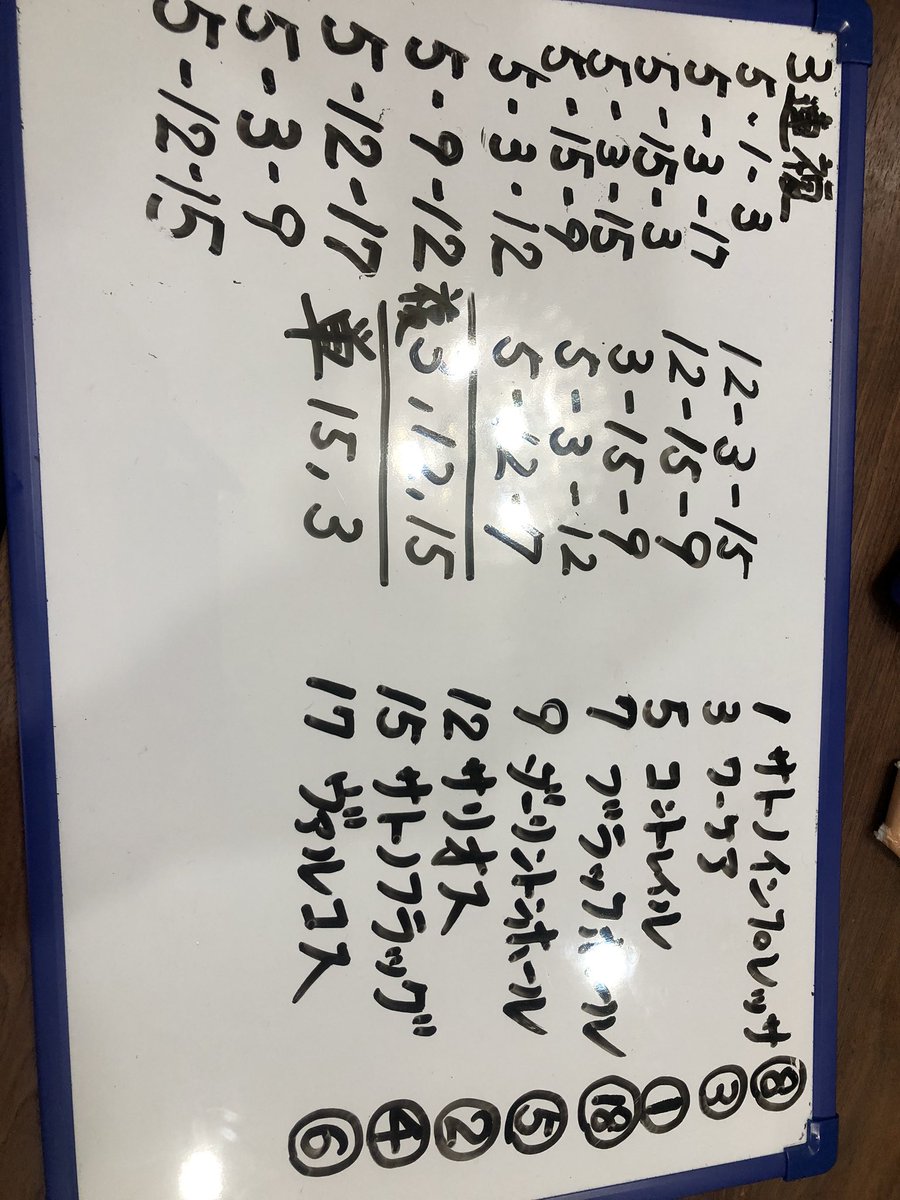 3連複
5-1-3
5-3-17
5-15-3
5-3-15
5-15-9
5-3-12
5-9-12
5-12-17
5-3-9
5-12-15
12-3-15
12-15-9
3-15-9
5-3-12
5-12-7
複 5,12,15
単 15,3
1 サトノインプレッサ ⑧
3 ワーケア ③
5 コントレイル ①
7 ブラックホール ⑱
9 ダーリントンホール ⑤
12 サリオス ②
15 サトノフラッグ ④
17 ヴァルコス ⑥